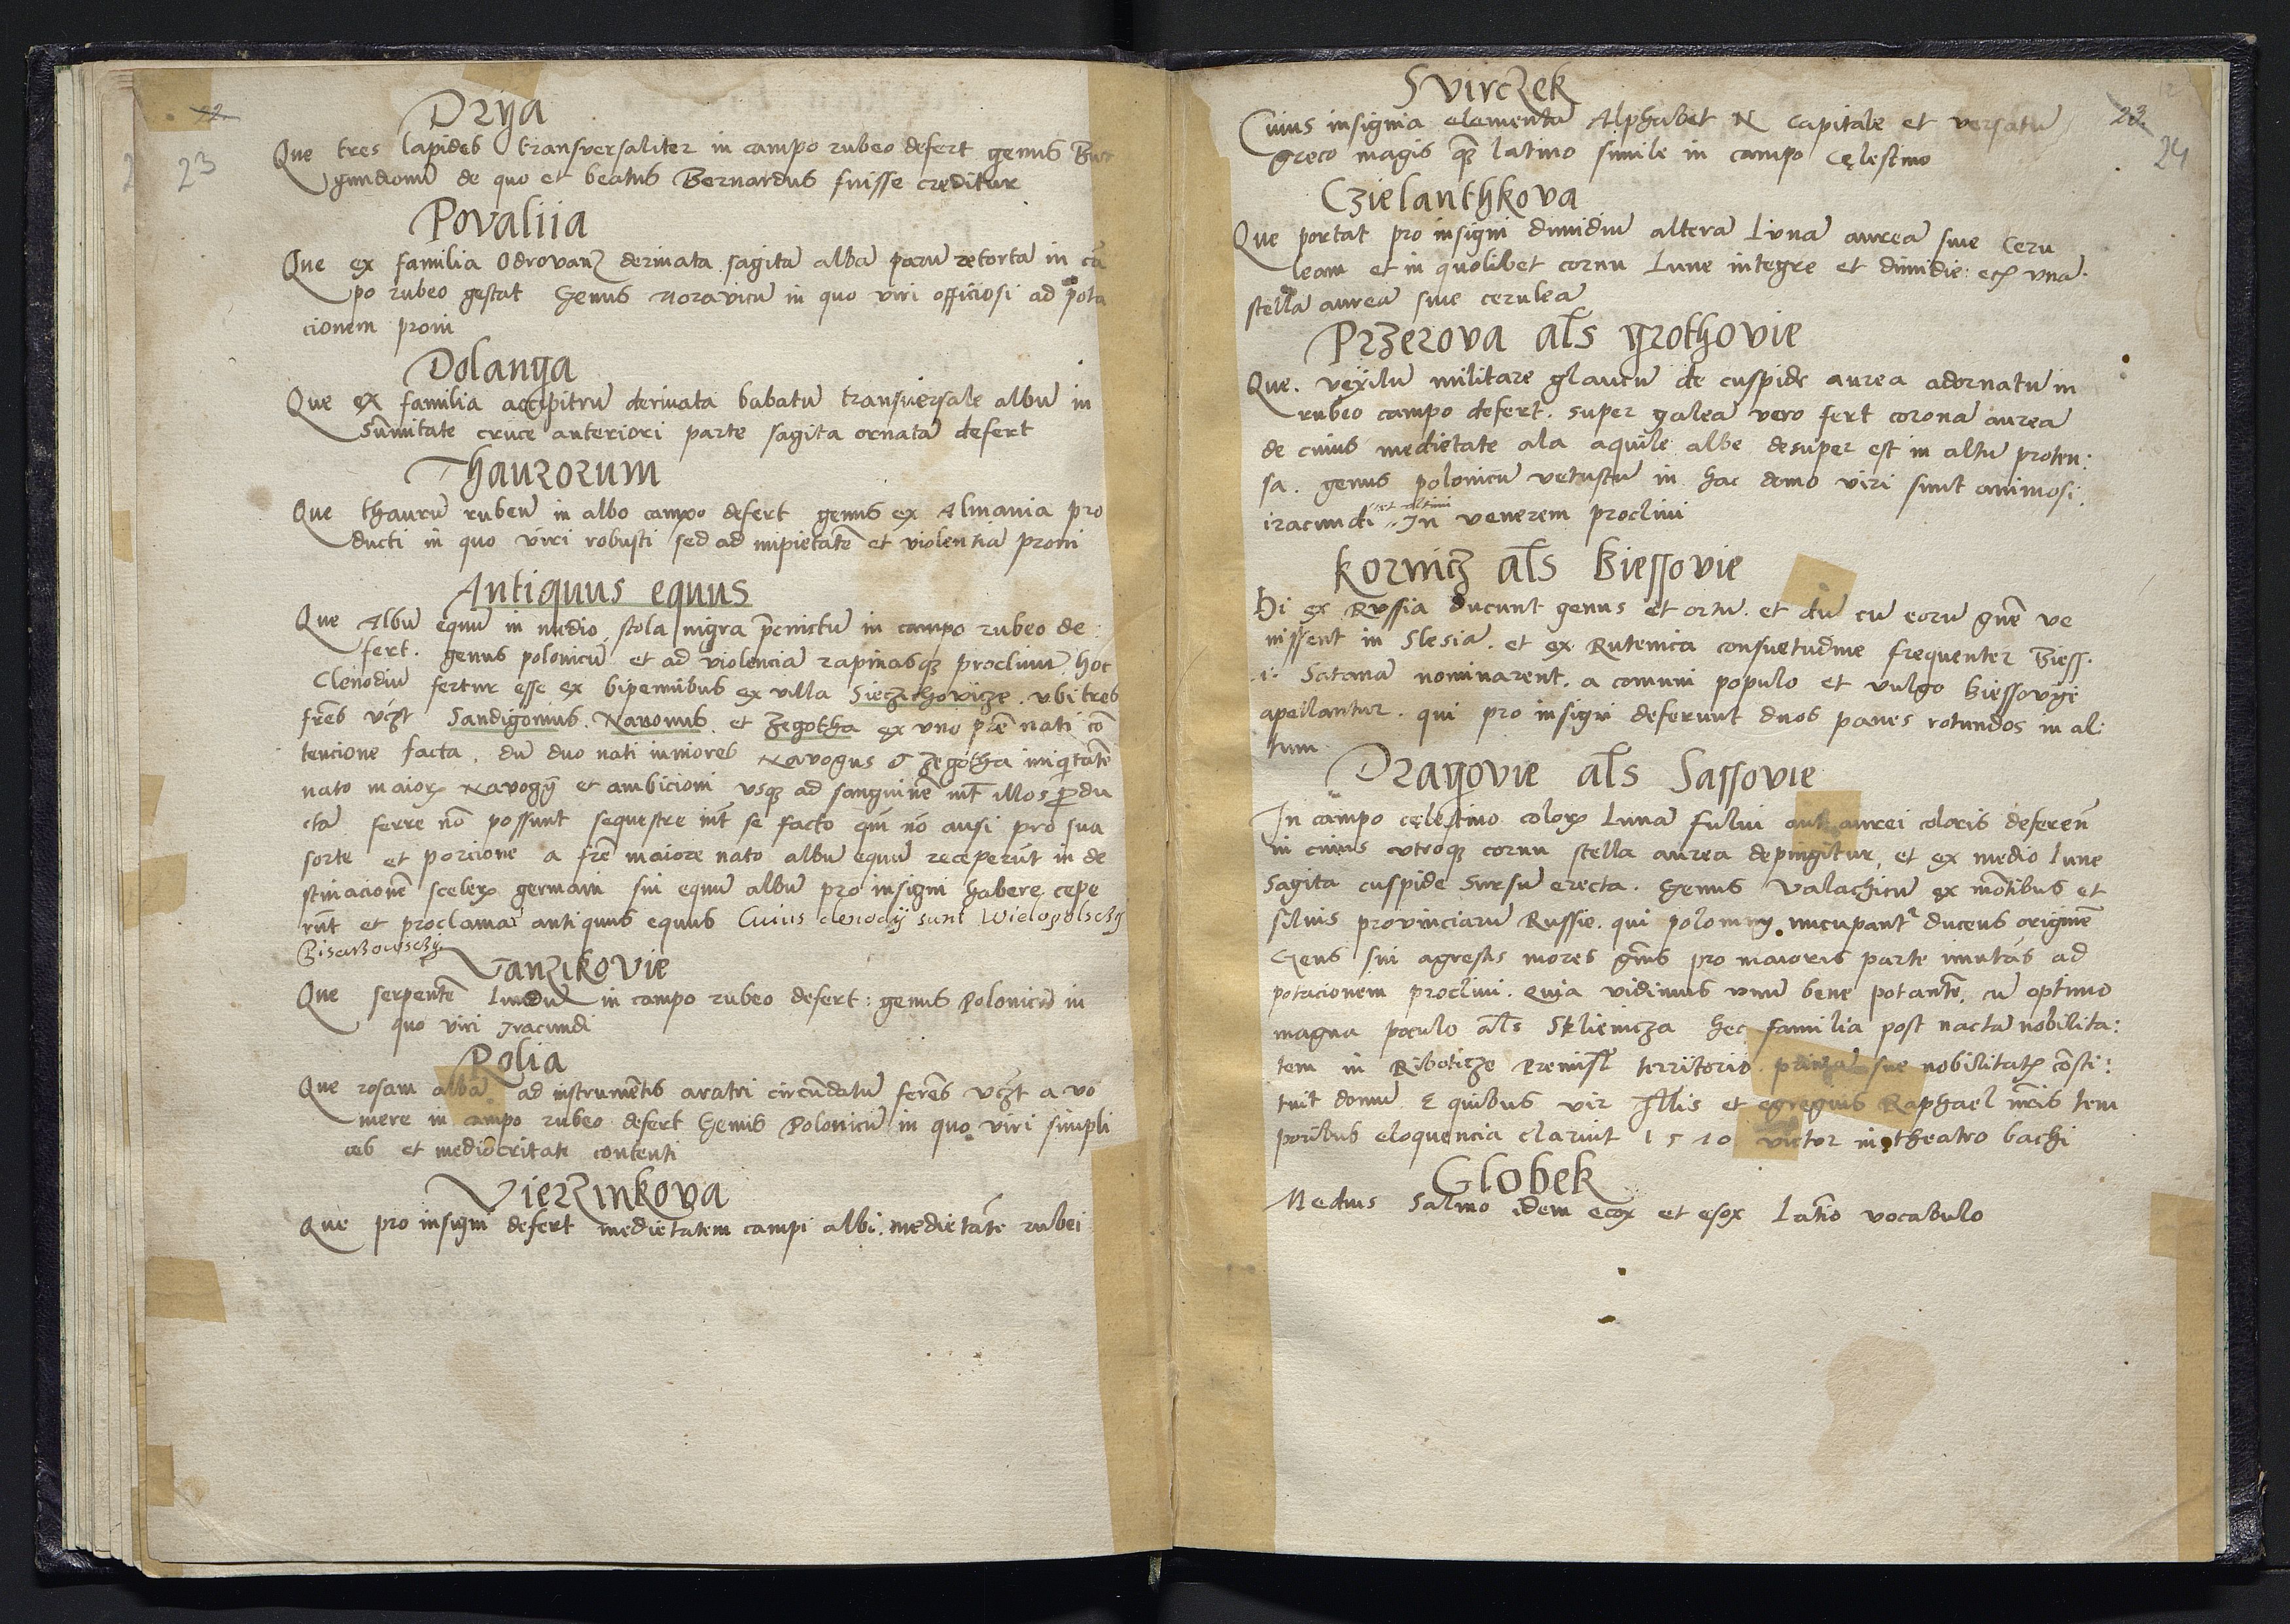 23
Drya
Que tres lapides transversaliter in campo rubeo defert genus Bur
gundionū de quo et beatus Bernardus fuisse creditur
Povaliia
Que ex familia Odrovanz derivata sagitā albā parū retortā in cā
po rubeo gestat Genus moravicū in quo viri officiosi ad pota
cionem proni
Dolanga
Que ex familia accipitrū derivata babatū transversale albū in
sūmitate cruce anteriori parte sagita ornatā defert
Thaurorum
Que thaurū rubeū in albo campo defert genus ex Almania pro
ducti in quo viri robusti sed ad impietatē et violentiā proni
Antiquus equus
Que Albū equū in medio stola nigra p̄cinctū in campo rubeo de:
fert. genus polonicū et ad violenciā rapinasq̄ proclivū hoc
Clenodiū fertur esse ex bipennibus ex villa Sieczichovicze. ubi tres
fr̄es vcz̄t Sandigonius. Navonus et Zegotha ex uno pr̄e nati cō
tencione facta. dū duo nati iuniores Navogus & Zegotha iniq̄tatē
nato maiorꝝ Navogij et ambicioni vsq̄ ad sanguinē int̄ illos ꝓdu
ctā ferre nō possunt sequestre int̄ se facto qn̄ nō ausi pro sua
sorte et porcione a fr̄e maiore nato albū equū receperūt in de
stinacionē scelerꝝ germani sui equū albū pro insigni habere cepe
rūt et proclamaī antiquus equus Cuius clenodij sunt Wielopolsczÿ
Biscarzowsczÿ
Vanzikovie
Que serpentē in campo rubeo defert: genus Polonicū in
quo viri Iracundi
Rolia
Que rosam albā ad instrumētis aratri circūdatū ferēs vcz̄t a vo
mere in campo rubeo defert Genus Polonicū in quo viri simpli
ces et mediocritate contenti
Vierzinkova
Que pro insigni defert medietatem campi albi. medietāte rubei
23
24
Svirczek
Cuius insignia elementū Alphabet N Capitale et versatū
greco magis q̄ latino simile in campo Cęlestino
Czielanthkova
Que portat pro insigni dimidiū alterā Lunā aureā sive Ceru
leam et in quolibet cornu Lune integre et dimidie: unā.
stellā aureā sive ceruleā
Przerova al̄s grothovie
Que. vexilū militare glaucū de cuspide aurea adornatū in
rubeo campo defert. super galeā vero fert coronā aureā
de cuius medietate ala aquile albe desuper est in altū proten:
sa. genus polonicū vetustū in hac domo viri sunt animosi:
iracundi In venerem proclivi
Kornicz al̄s Biessovie
Hi ex Russia ducunt genus et ortū. et dū cū eorū gn̄e ve
nissent in Slesiā. et ex Rutenica consuetudine frequenter Biess.
.i. Satanā nominarent. a comuni populo et vulgo Biessovyÿ
apellantur. qui pro insigni deferunt duos panes rotundos in al:
tum
Dragovie al̄s Sassovie
In campo cęlestino colorꝝ Lunā fulvi aut aurei coloris deferēn
in cuius utroq̄ cornu stella aurea depingitur, et ex medio lune
sagita cuspide sursū erecta. Genus Valachicū ex mōtibus et
silvis provinciarū Russie. qui poloniny nūcupant̄ ducens originē
Gens sui agrestis mores gn̄is pro maioris parte imutās ad
potacionem proclivi. Quia vidimus unū bene potantē, cū optimo
magna poculo al̄s Skliencza hec familia post nactā nobilita:
tem in Riboticze Premisl̄ territorio primā sue nobilitatꝭ cōsti:
tuit domū E quibus vir Ill̄is et egregius Raphael nr̄is tem
poribus eloquencia claruit 1510 victor in theatro bachi
Globek
Medius Salmo idem ecox et esox Lat̄io vocabulo